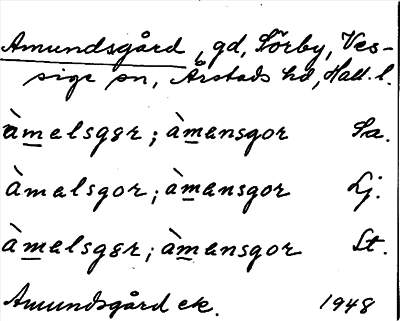 Amundsgård, gd, Sörby, Ves-
sige sn, Årstads hd, Hall. l.
àmelsgɛr; àmensgor Sa.
àmelsgor; àmensgor Lj.
àmelsgɛr; àmensgor St.
Amundsgård ek. 1948